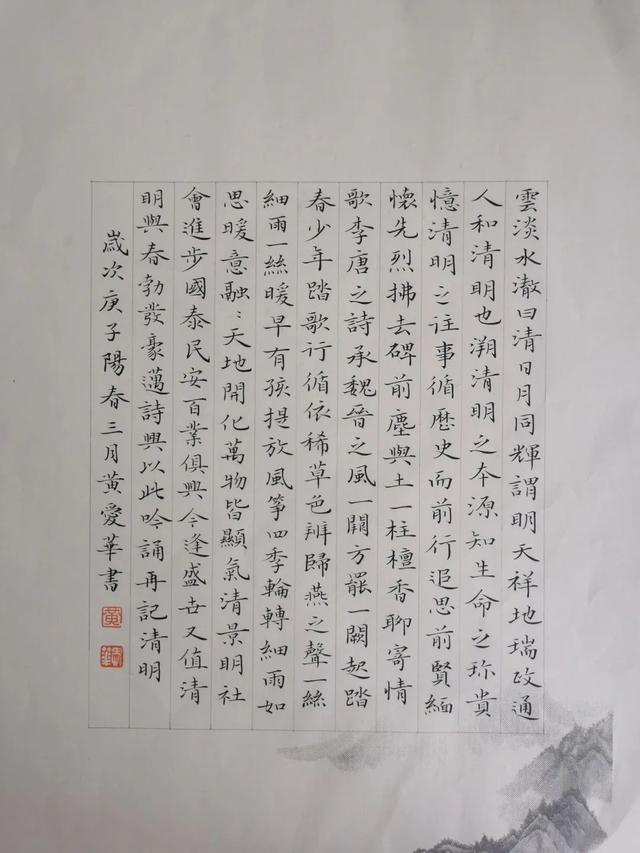 雲淡水澈曰清日月同輝謂明天祥地瑞政通
人和清明也溯清明之本源知生命之珎貴
憶清明之往事循歷史而前行追思前賢緬
懷先烈拂去碑前塵與土一柱檀香聊寄情
歌李唐之詩承魏晉之風一闋方罷一闕起踏
春少年踏歌行循依稀草色辨歸燕之聲一絲
細雨一絲暖早有孩提放風箏四季輪轉細雨如
思暖意融﹕天地開化萬物皆顯氣清景明社
會進步國泰民安百業俱興今逢盛世又值清
明與春勃發豪邁詩興以此吟誦再記清明
歲次庚子陽春三月黃愛華書